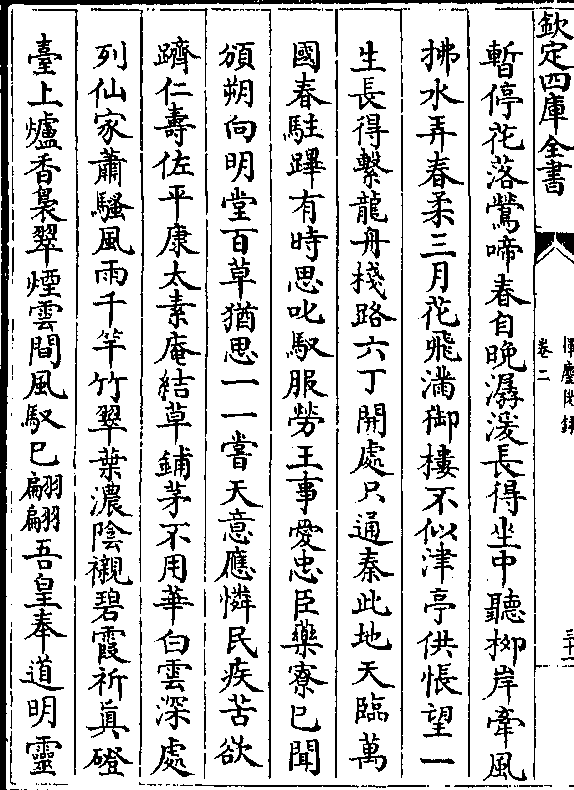 欽定四庫全書
揮麈後錄
卷二
三十一
暫停花落鶯啼春自晚潺湲長得坐中聽栁岸牽風
拂水弄春柔三月花飛滿御樓不似津亭供悵望一
生長得繫龍舟棧路六丁開處只通秦此地天臨萬
國春駐蹕有時思叱馭服勞王事愛忠臣藥寮已聞
頒朔向明堂百草猶思一一嘗天意應憐民疾苦欲
躋仁壽佐平康太素庵結草鋪茅不用華白雲深處
列仙家蕭騷風雨千竿竹翠葉濃陰襯碧霞祈真磴
臺上爐香裊翠煙雲間風馭已翩翩吾皇奉道明靈